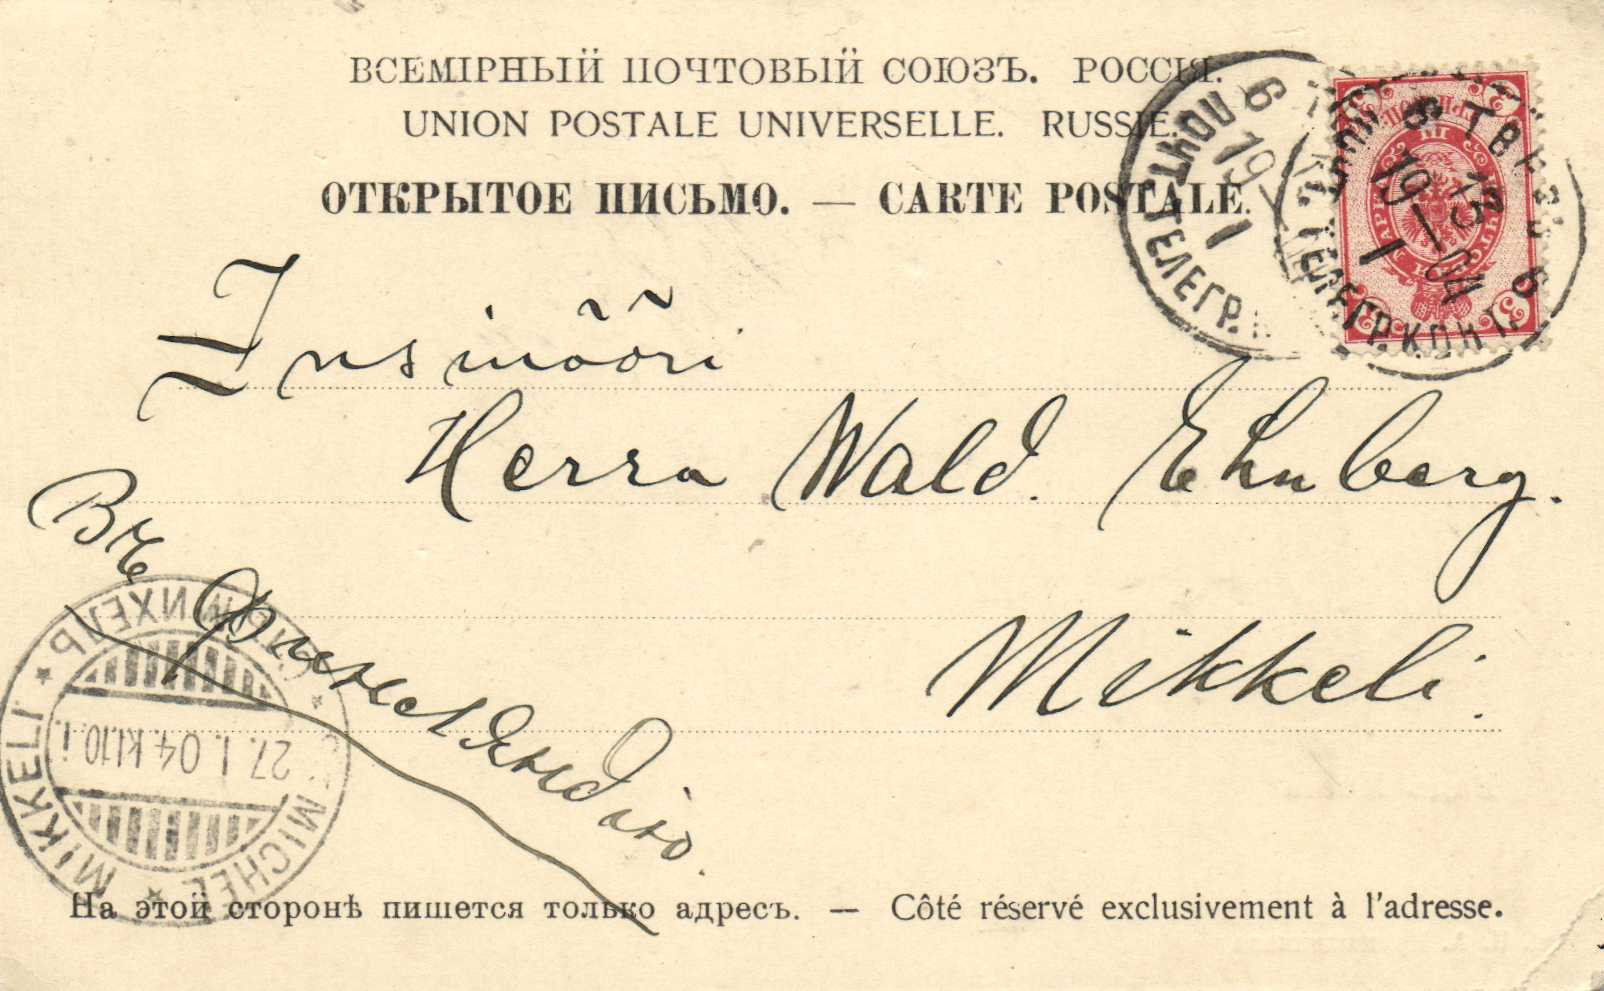 ВСЕМІРНЫЙ ПОЧТОВЫЙ СОЮЗЪ. РОССІЯ.
UNION POSTALE UNIVERSELLE. RUSSIE.
ОТКРЫТОЕ ПИСЬМО. — CARTE POSTALE.
6 19 1
ПОЧТ. ТЕЛЕГР.
ТВЕРЬ 6
6 19 13/I 04 1
ТЕЛЕГР. КОНТ.
3 3
Insinööri
Herra Wald. Ehnberg.
Въ Финляндію.
Mikkeli.
MIKKELI ST MICHEL С. МИХЕЛЬ
27. I. 04. kl.10 i.
На этой сторонѣ пишется только адресъ. — Côté réservé exclusivement à l'adresse.